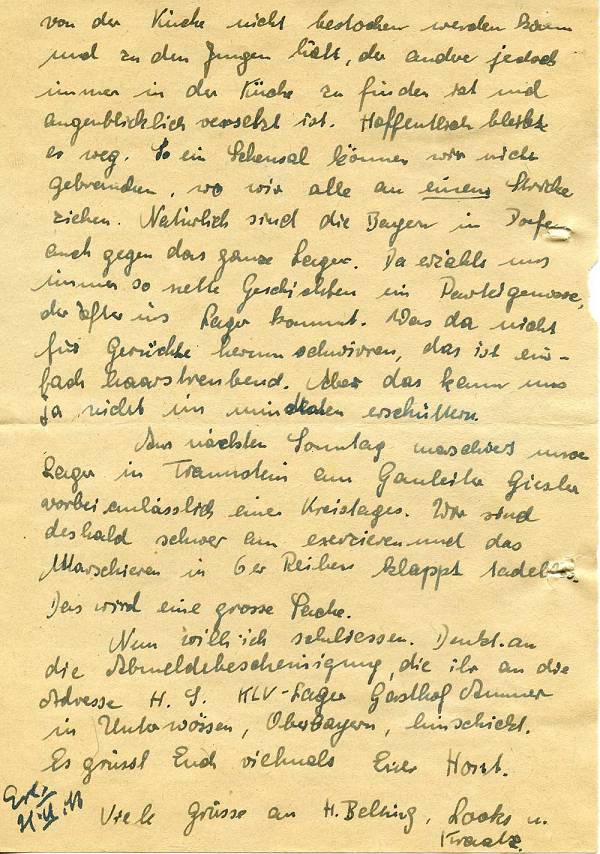 von der Küche nicht bestochen werden kann
und zu den Jungen hält, der andre jedoch
immer in der Küche zu finden ist und
augenblicklich versetzt ist. Hoffentlich bleibt
er weg. So ein Scheusal können wir nicht
gebrauchen, wo wir alle an einem Stricke
ziehen. Natürlich sind die Bayern in Dorfen
auch gegen das ganze Lager. Da erzählt uns
immer so nette Geschichten ein Parteigenosse,
der öfter ins Lager kommt. Was da nicht
für Gerüchte herumschwirren, das ist ein-
fach haarsträubend. Aber das kann uns
ja nicht im mindesten erschüttern.
Am nächsten Sonntag marschiert unser
Lager in Traunstein am Gauleiter Giesler
vorbei anlässlich eines Kreistages. Wir sind
deshalb schwer am exerzieren und das
Marschieren in 6er Reihen klappt tadellos.
Das wird eine grosse Sache.
Nun will ich schliessen. Denkt an
die Abmeldebescheinigung, die ihr an die
Adresse H. S. KLV-Lager Gasthof Ammer
in Unterwössen, Oberbayern, hinschickt.
Es grüsst Euch vielmals Euer Horst.
Viele Grüsse an H. Belling, Looks u.
Kraatz.